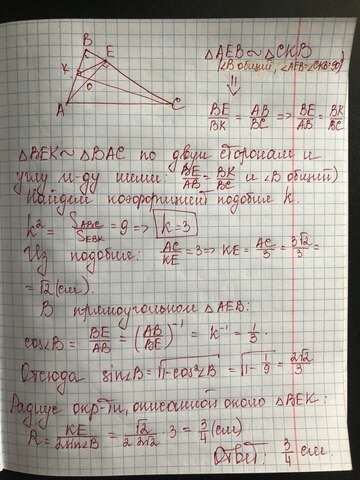 B
E
K
O
A
C
△AEB ~ △CKB
(∠B общий, ∠AEB=∠CKB=90)
⇓
BE/BK = AB/BC => BE/AB = BK/BC
△BEK ~ △BAC по двум сторонам и
углу м-ду ними: (BE/AB = BK/BC и ∠B общий)
Найдём коэффициент подобия k.
k² = S_ABC/S_EBK = 9 => k=3
Из подобия: AC/KE = 3 => KE = AC/3 = 3√2/3 =
= √2 (см).
В прямоугольном △AEB:
cos∠B = BE/AB = (AB/BE)⁻¹ = k⁻¹ = 1/3.
Отсюда sin∠B = √1-cos²∠B = √1-1/9 = 2√2/3
Радиус окр-ти, описанной около △BEK:
R = KE/2sin∠B = √2/2·2√2 · 3 = 3/4 (см)
Ответ: 3/4 см.